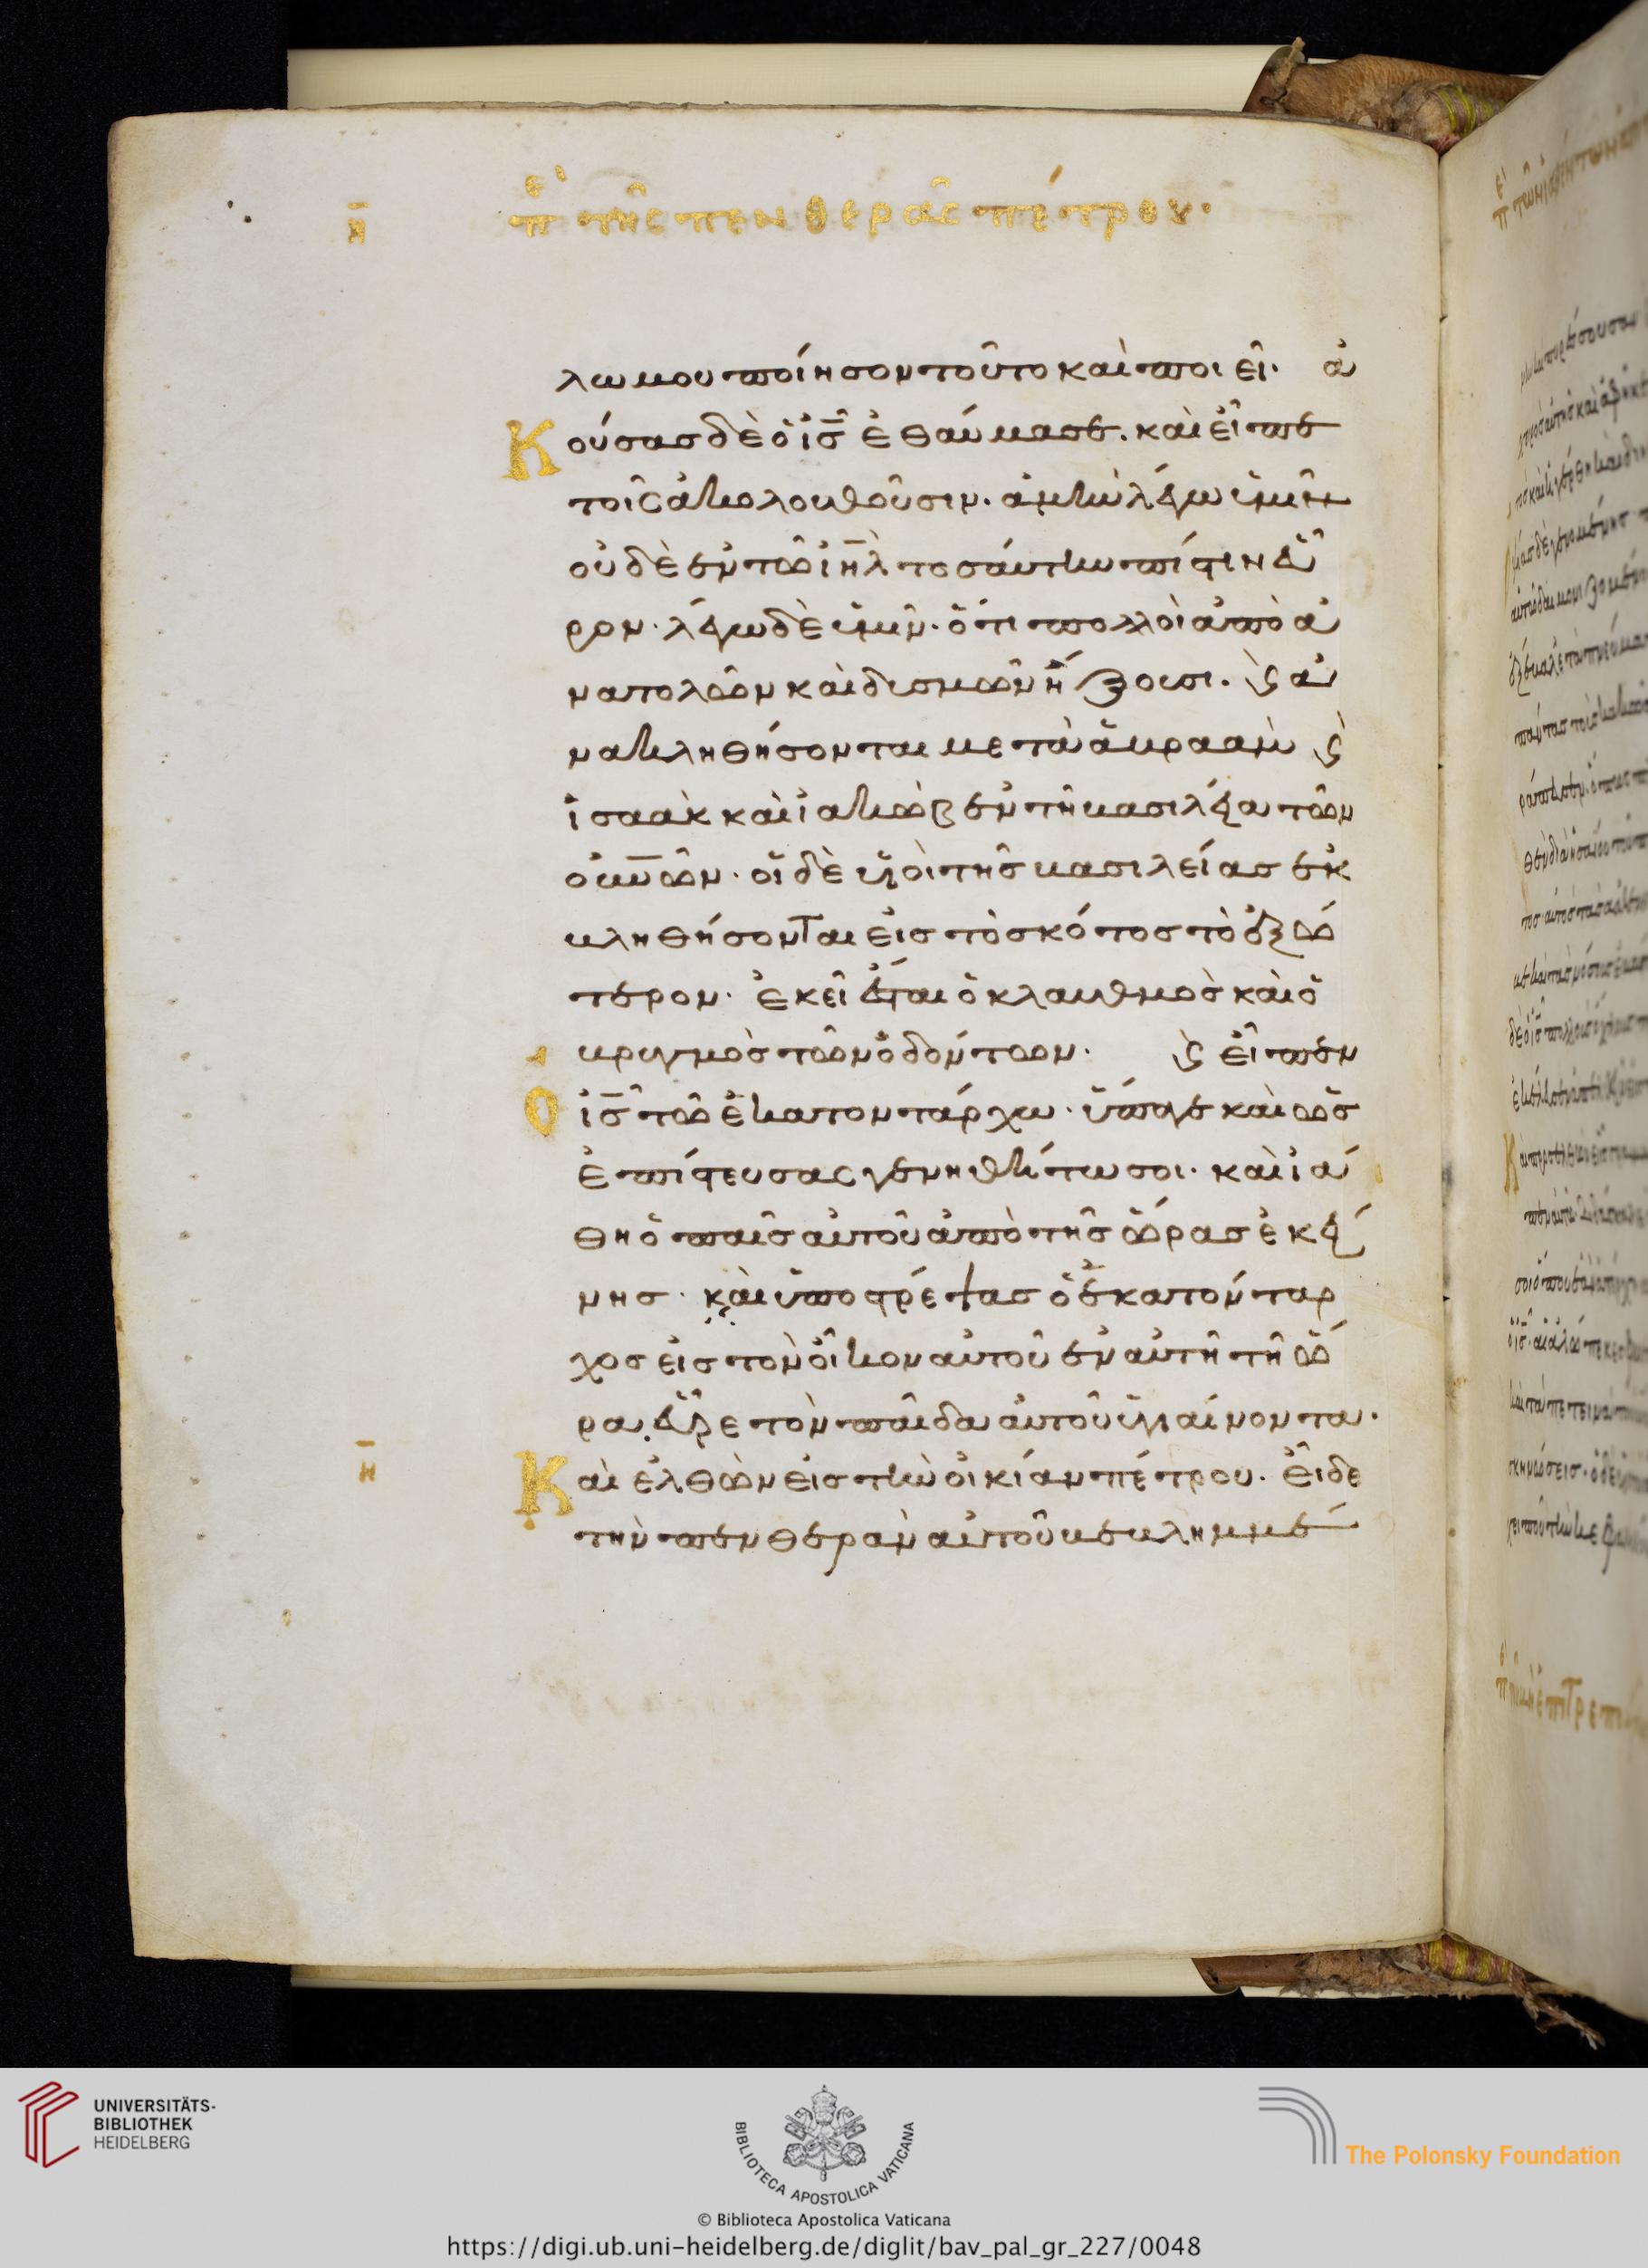 η̄ περὶ τῆς πενθερᾶς πέτρου·
λω μου ποίησον τοῦτο καὶ ποιεῖ· ἀ
Κούσας δὲ ὁ ις̄ ἐθαύμασε. καὶ εἶπε
τοῖς ἀκολουθοῦσιν. ἀμὴν λέγω ὑμῖν
οὐδὲ ἐν τῶ ιηλ̄ τοσαύτην πίστιν εὗ
ρον· λέγω δὲ ὑμῖν· ὅτι πολλοὶ ἀπὸ ἀ
νατολῶν καὶ δυσμῶν ἥξουσι. ϗ ἀ
νακληθήσονται μετὰ ἀβραὰμ ϗ
ἰσαὰκ καὶ ἰακὼβ ἐν τῆ βασιλεία τῶν
οὐν̄ῶν· οἱ δὲ υἱοὶ τῆς βασιλείας ἐκ
βληθήσονται εἰς τὸ σκότος τὸ ἐξώ
τερον· ἐκεῖ ἔσται ὁ κλαυθμὸς καὶ ὁ
βρυγμὸς τῶν ὀδόντων· ϗ εἶπεν
Ο ις̄ τῶ ἑκατοντάρχω· ὕπαγε καὶ ὡς
ἐπίστευσας γενηθήτω σοι· καὶ ἰά
θη ὁ παῖς αὐτοῦ ἀπὸ τῆς ὥρας ἐκεί
νης· καὶ ὑποστρέψας ὁ ἑκατόνταρ
χος εἰς τὸν οἶκον αὐτοῦ ἐν αὐτῆ τῆ ὥ
ρα, εὗρε τὸν παῖδα αὐτοῦ ὑγιαίνοντα·
η̄ Καὶ ἐλθὼν εἰς τὴν οἰκίαν πέτρου· εἶδε
τὴν πενθερὰν αὐτοῦ βεβλημμέ
UNIVERSITÄTS-
BIBLIOTHEK
HEIDELBERG
BIBLIOTECA APOSTOLICA VATICANA
The Polonsky Foundation
© Biblioteca Apostolica Vaticana
https://digi.ub.uni-heidelberg.de/diglit/bav_pal_gr_227/0048